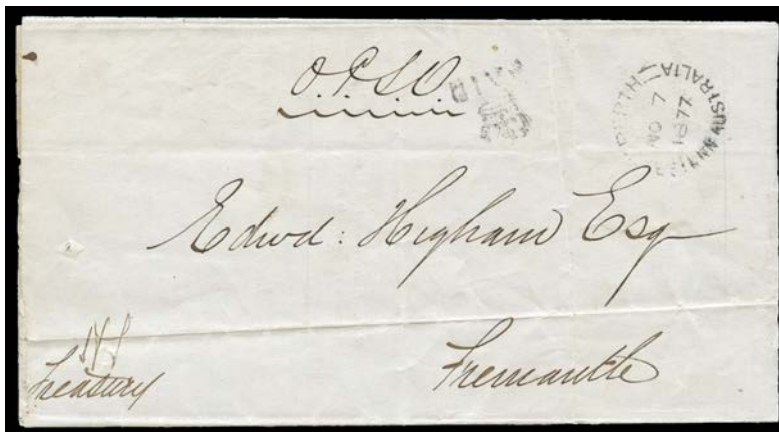 O.P.S.O
PAID
PERTH WESTERN AUSTRALIA
NO 7
1877
Edwd: Higham Esq
Fremantle
Treasury